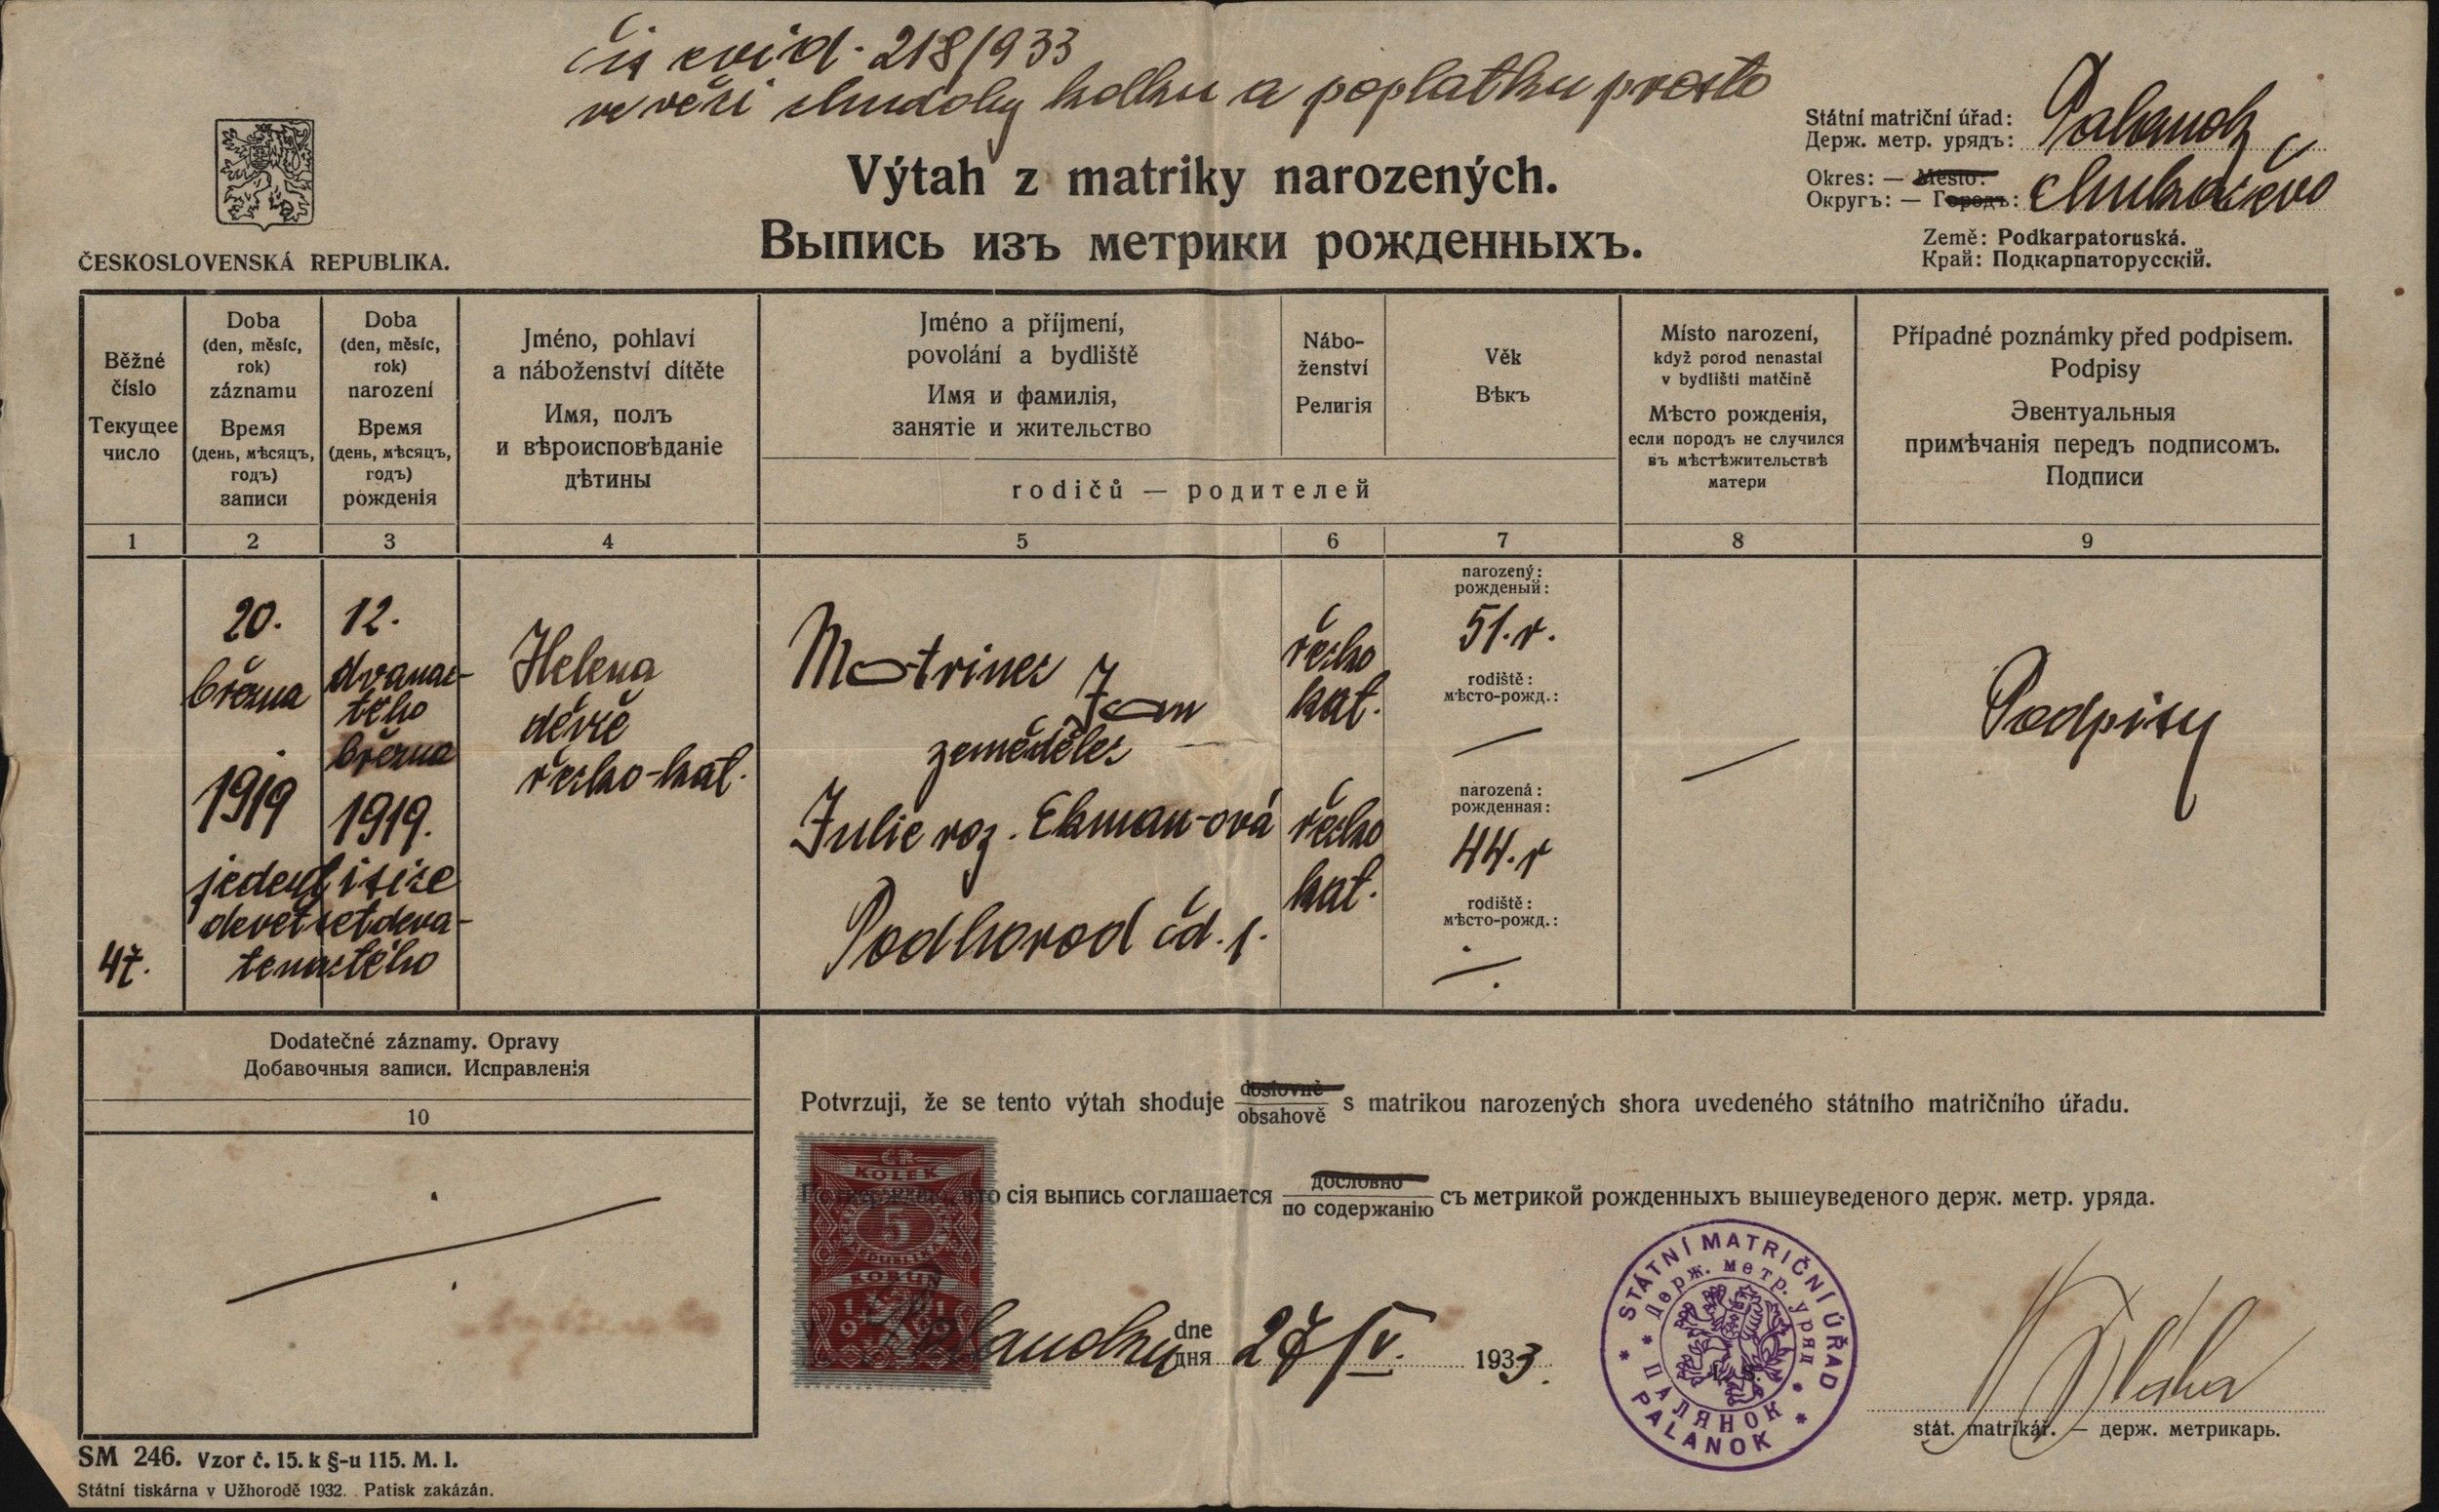 čis evid. 218/933
ve věci chudoby kolku a poplatku prosto
Státní matriční úřad:
Держ. метр. урядъ:
Palanok
Okres: — Město:
Округъ: — Городъ:
Mukačevo
Země: Podkarpatoruská.
Край: Подкарпаторусскій.
ČESKOSLOVENSKÁ REPUBLIKA.
Výtah z matriky narozených.
Выпись изъ метрики рожденныхъ.
Běžné
číslo
Текущее
число
Doba
(den, měsíc,
rok)
záznamu
Время
(день, мѣсяцъ,
годъ)
записи
Doba
(den, měsíc,
rok)
narození
Время
(день, мѣсяцъ,
годъ)
рожденія
Jméno, pohlaví
a náboženství dítěte
Имя, полъ
и вѣроисповѣданіе
дѣтины
Jméno a příjmení,
povolání a bydliště
Имя и фамилія,
занятіе и жительство
Nábo-
ženství
Религія
Věk
Вѣкъ
rodičů — родителей
Místo narození,
když porod nenastal
v bydlišti matčině
Мѣсто рожденія,
если породъ не случился
въ мѣстѣжительствѣ
матери
Případné poznámky před podpisem.
Podpisy
Эвентуальныя
примѣчанія передъ подписомъ.
Подписи
1 2 3 4 5 6 7 8 9
47.
20.
března
1919
12.
dvanác-
tého
března
1919.
jeden tisíce
devětsetdeva-
tenáctého
Helena
děvče
řecko-kat.
Motrinec
Jan
zemědělec
Julie roz. Ekman-ová
Podhorod čd. 1.
řecko
kat.
řecko
kat.
narozený:
рожденый:
51. r.
rodiště:
мѣсто-рожд.:
—
narozená:
рожденная:
44. r
rodiště:
мѣсто-рожд.:
—
—
Podpisy
Dodatečné záznamy. Opravy
Добавочныя записи. Исправленія
10
Potvrzuji, že se tento výtah shoduje doslovně
obsahově s matrikou narozených shora uvedeného státního matričního úřadu.
что сія выпись соглашается дословно
по содержанію съ метрикой рожденныхъ вышеуведеного держ. метр. уряда.
KOLEK
5
KORUN
Palanoku dne
дня 27/IV. 1933.
STÁTNÍ MATRIČNÍ ÚŘAD
Держ. метр. уряд
ПАЛЯНОК
PALANOK
Bláha
stát. matrikář. — держ. метрикарь.
SM 246. Vzor č. 15. k §-u 115. M. I.
Státní tiskárna v Užhorodě 1932. Patisk zakázán.